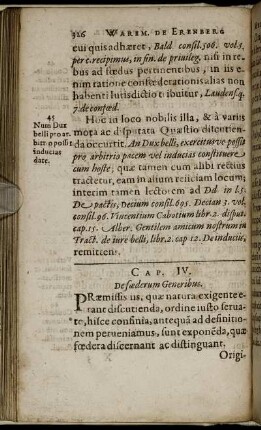 326 WAREM. DE ERENBERG
cui quis adhæret, Bald consil. 506. vol. 5.
per c. recipimus, in fin. de privileg. nisi in re
bus ad fœdus pertinentibus, in iis e-
nim ratione confœderationis alias non
habenti Iurisdictio tribuitur, Laudens. q.
7. de confœd.
45
Num Dux
belli pro ar-
bitrio possit
inducias
dare.
Hoc in loco nobilis illa, & à variis
mota ac disputata Quæstio discutien-
da occurrit. An Dux belli, exercitusve possit
pro arbitrio pacem vel inducias constituere
cum hoste; quæ tamen cum alibi rectius
tractetur, eam in alium reiiciam locum;
interim tamen lectorem ad Dd. in l. 5.
De pactis, Decium consil. 695. Decian 3. vol.
consil. 96. Vincentium Cabotium libr. 2. disput.
cap. 15. Alber. Gentilem amicum nostrum in
Tract. de iure belli, libr. 2. cap 12. De induciis,
remittens.
CAP. IV.
De fœderum Generibus.
PRæmissis iis, quæ natura exigente e-
rant discutienda, ordine iusto serua-
to, hisce confinia, antequã ad definitio-
nem perueniamus, sunt exponẽda, quæ
fœdera discernant ac distinguant,
Origi-